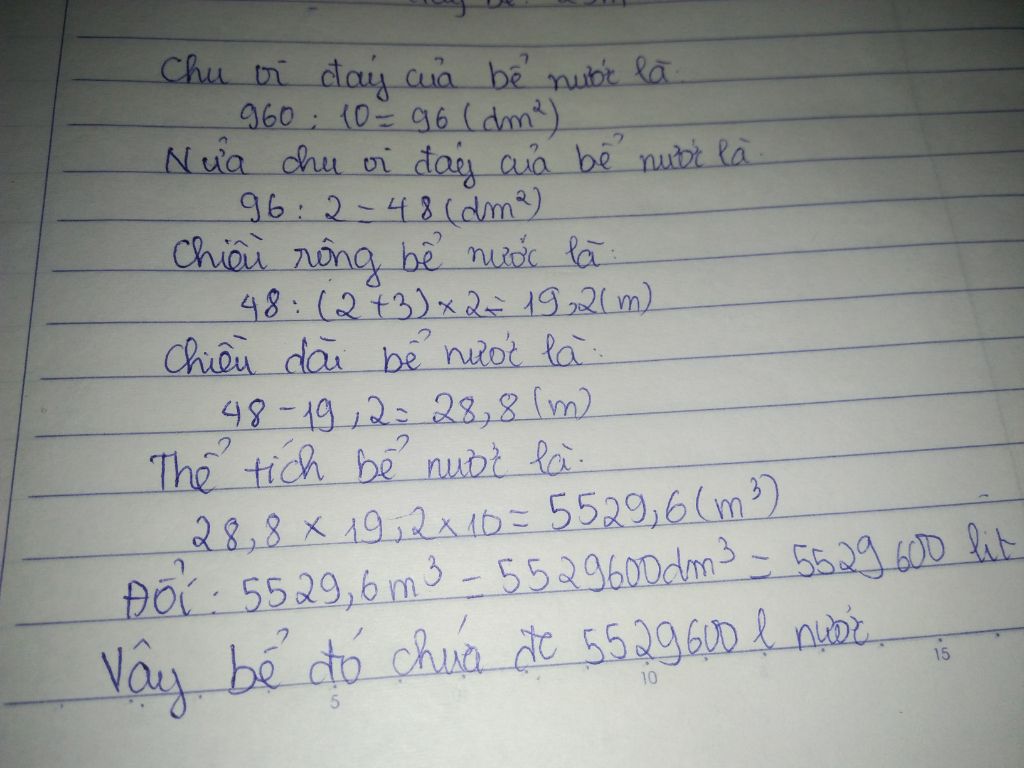 Chu vi đáy của bể nước là.
960 : 10 = 96 (dm²)
Nửa chu vi đáy của bể nước là.
96 : 2 = 48 (dm²)
Chiều rộng bể nước là:
48 : (2 + 3) × 2 = 19,2 (m)
Chiều dài bể nước là:
48 - 19,2 = 28,8 (m)
Thể tích bể nước là:
28,8 × 19,2 × 10 = 5529,6 (m³)
Đổi: 5529,6 m³ = 5529600 dm³ = 5529600 lít
Vậy bể đó chứa đc 5529600 l nước
5 10 15